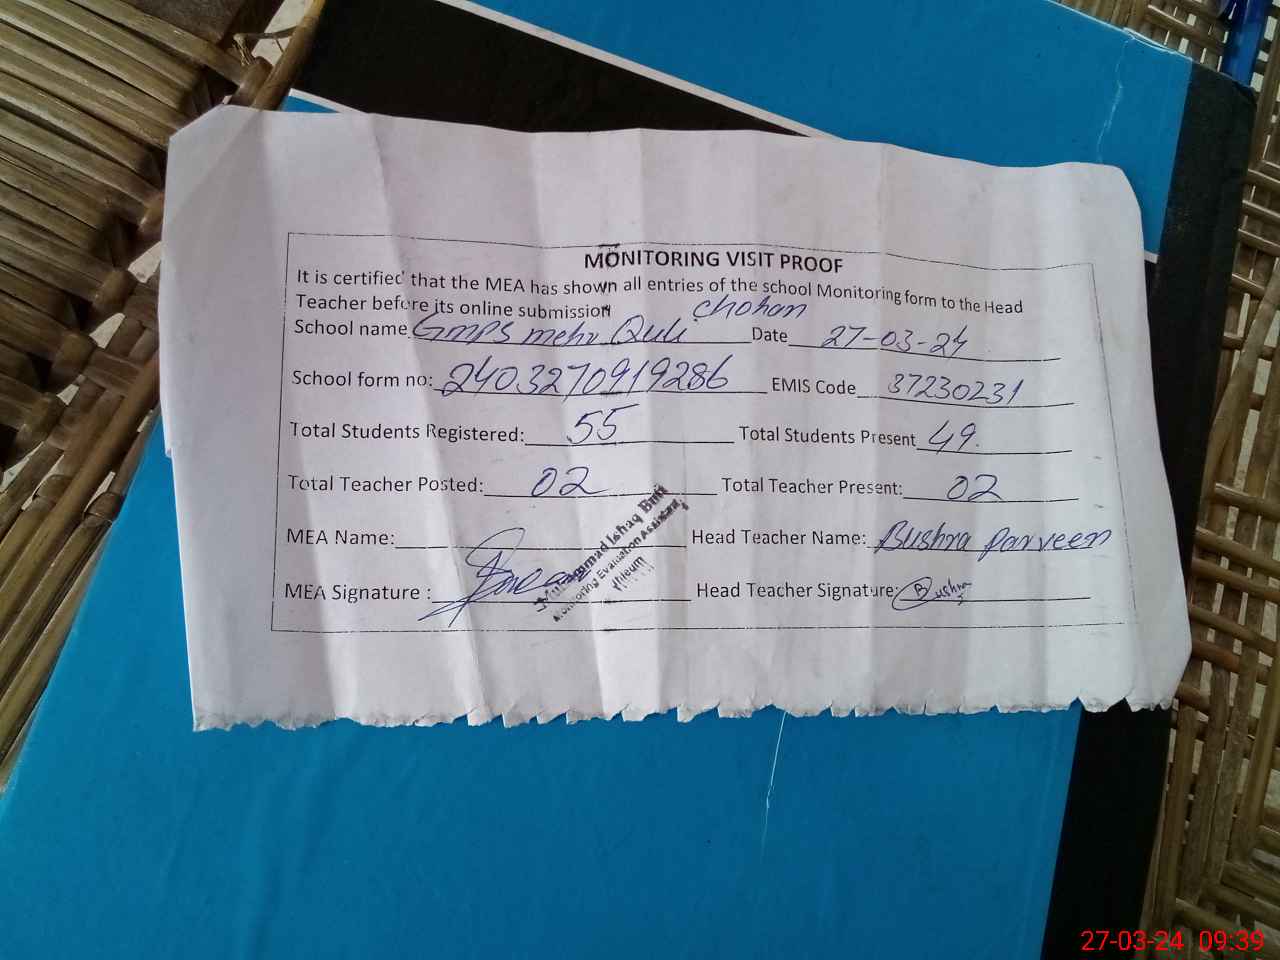 MONITORING VISIT PROOF
It is certified that the MEA has shown all entries of the school Monitoring form to the Head
Teacher before its online submission
chohan
School name Gmps mehr Quli Date 27-03-24
School form no: 2403270919286 EMIS Code 37230231
Total Students Registered: 55 Total Students Present 49.
Total Teacher Posted: 02 Total Teacher Present: 02
MEA Name: Head Teacher Name: Bushra parveen
MEA Signature : Head Teacher Signature: Bushra
Muhammad Ishaq Butt
Monitoring Evaluation Assistant
Jhleum
27-03-24 09:39